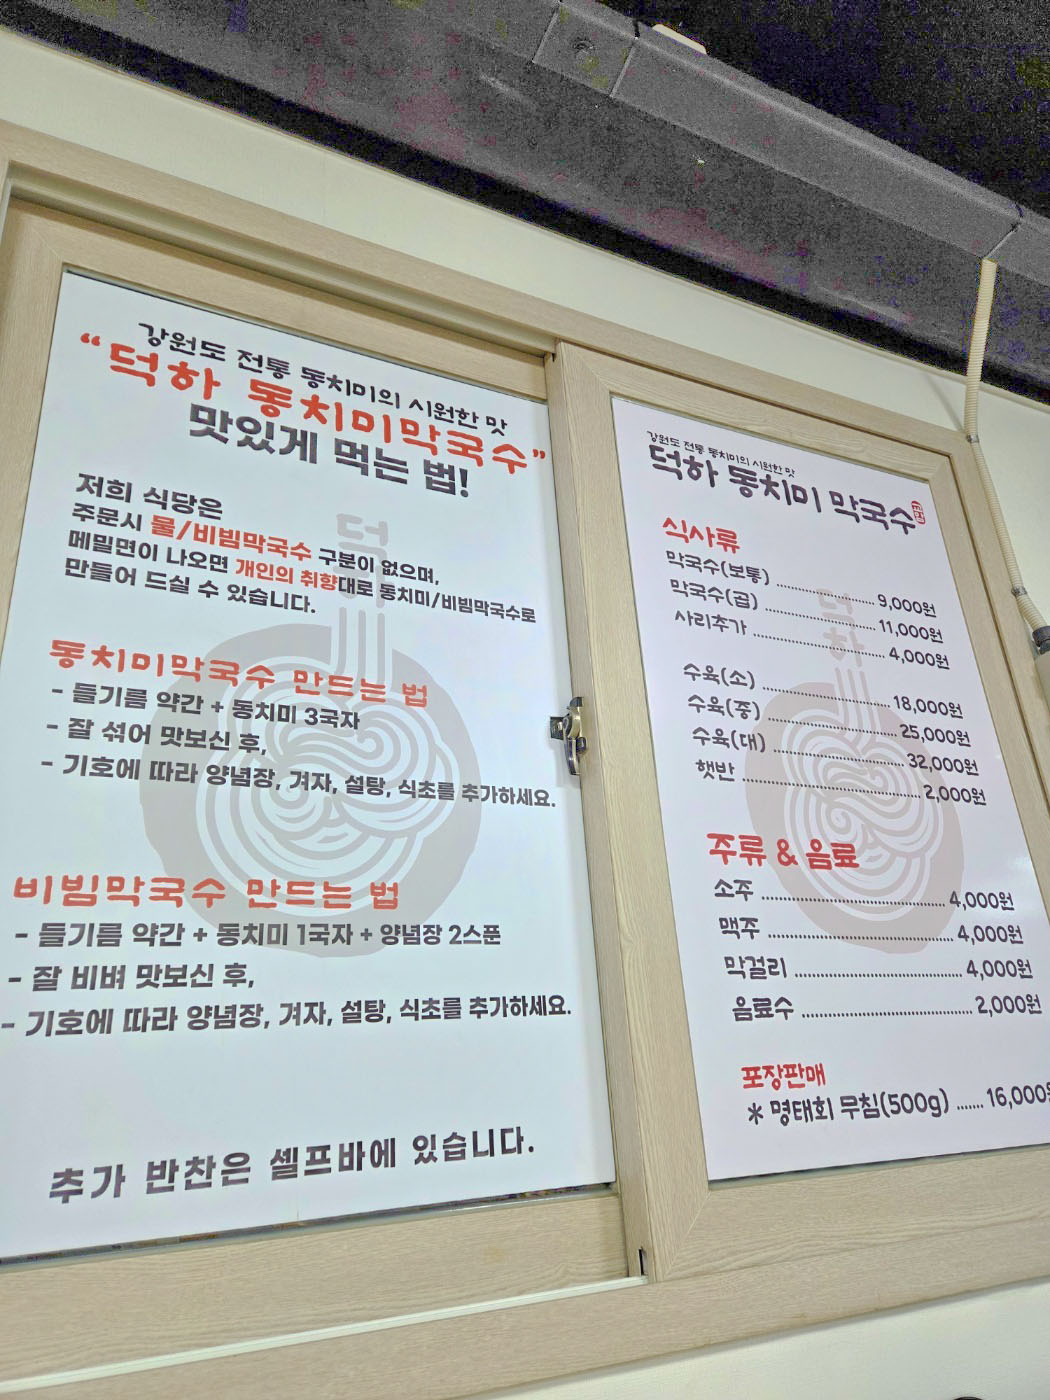 강원도 전통 동치미의 시원한 맛
“덕하 동치미막국수”
맛있게 먹는 법!
저희 식당은
주문시 물/비빔막국수 구분이 없으며,
메밀면이 나오면 개인의 취향대로 동치미/비빔막국수로
만들어 드실 수 있습니다.
동치미막국수 만드는 법
- 들기름 약간 + 동치미 3국자
- 잘 섞어 맛보신 후,
- 기호에 따라 양념장, 겨자, 설탕, 식초를 추가하세요.
비빔막국수 만드는 법
- 들기름 약간 + 동치미 1국자 + 양념장 2스푼
- 잘 비벼 맛보신 후,
- 기호에 따라 양념장, 겨자, 설탕, 식초를 추가하세요.
추가 반찬은 셀프바에 있습니다.
강원도 전통 동치미의 시원한 맛
덕하 동치미 막국수
식사류
막국수(보통) 9,000원
막국수(곱) 11,000원
사리추가 4,000원
수육(소) 18,000원
수육(중) 25,000원
수육(대) 32,000원
햇반 2,000원
주류 & 음료
소주 4,000원
맥주 4,000원
막걸리 4,000원
음료수 2,000원
포장판매
* 명태회 무침(500g) 16,000원
덕하
덕하